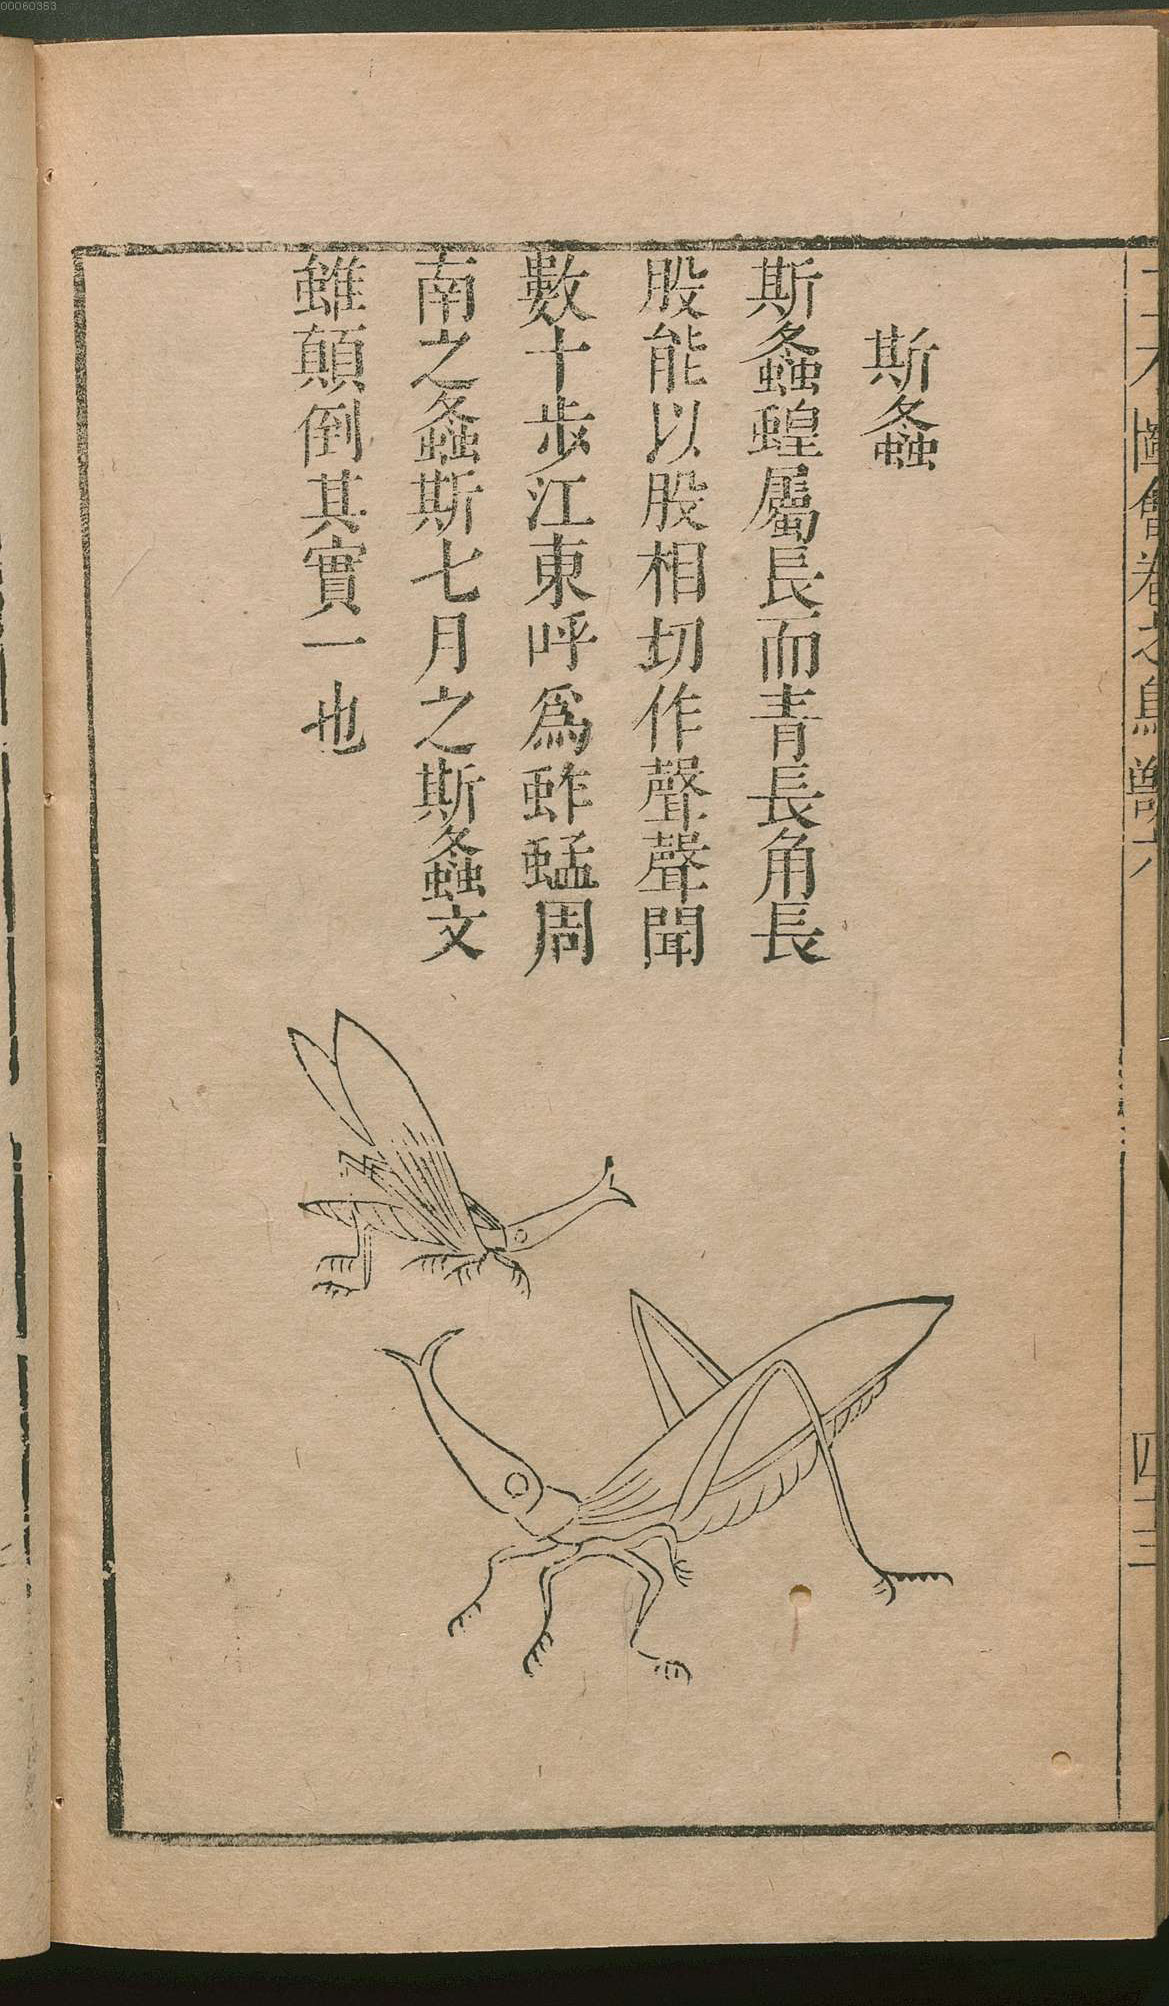 斯螽
斯螽蝗屬長而青長角長
股能以股相切作聲聲聞
數十步江東呼爲蚱蜢周
南之螽斯七月之斯螽文
雖顛倒其實一也
三才圖會卷之鳥獸六
四十三
00060353